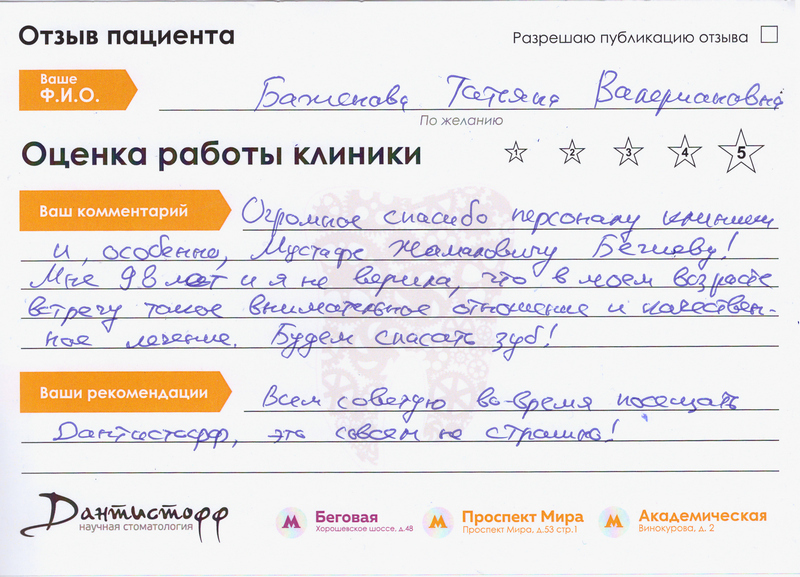 Отзыв пациента
Разрешаю публикацию отзыва
Ваше
Ф.И.О.
Баженова Татьяна Валериановна
По желанию
Оценка работы клиники
1 2 3 4 5
Ваш комментарий
Огромное спасибо персоналу клиники
и, особенно, Мустафе Жамаловичу Бегиеву!
Мне 98 лет и я не верила, что в моем возрасте
встречу такое внимательное отношение и качествен-
ное лечение. Будем спасать зуб!
Ваши рекомендации
Всем советую во-время посещать
Дантистофф, это совсем не страшно!
Дантистофф
научная стоматология
Беговая
Хорошевское шоссе, д.48
Проспект Мира
Проспект Мира, д.53 стр.1
Академическая
Винокурова, д. 2